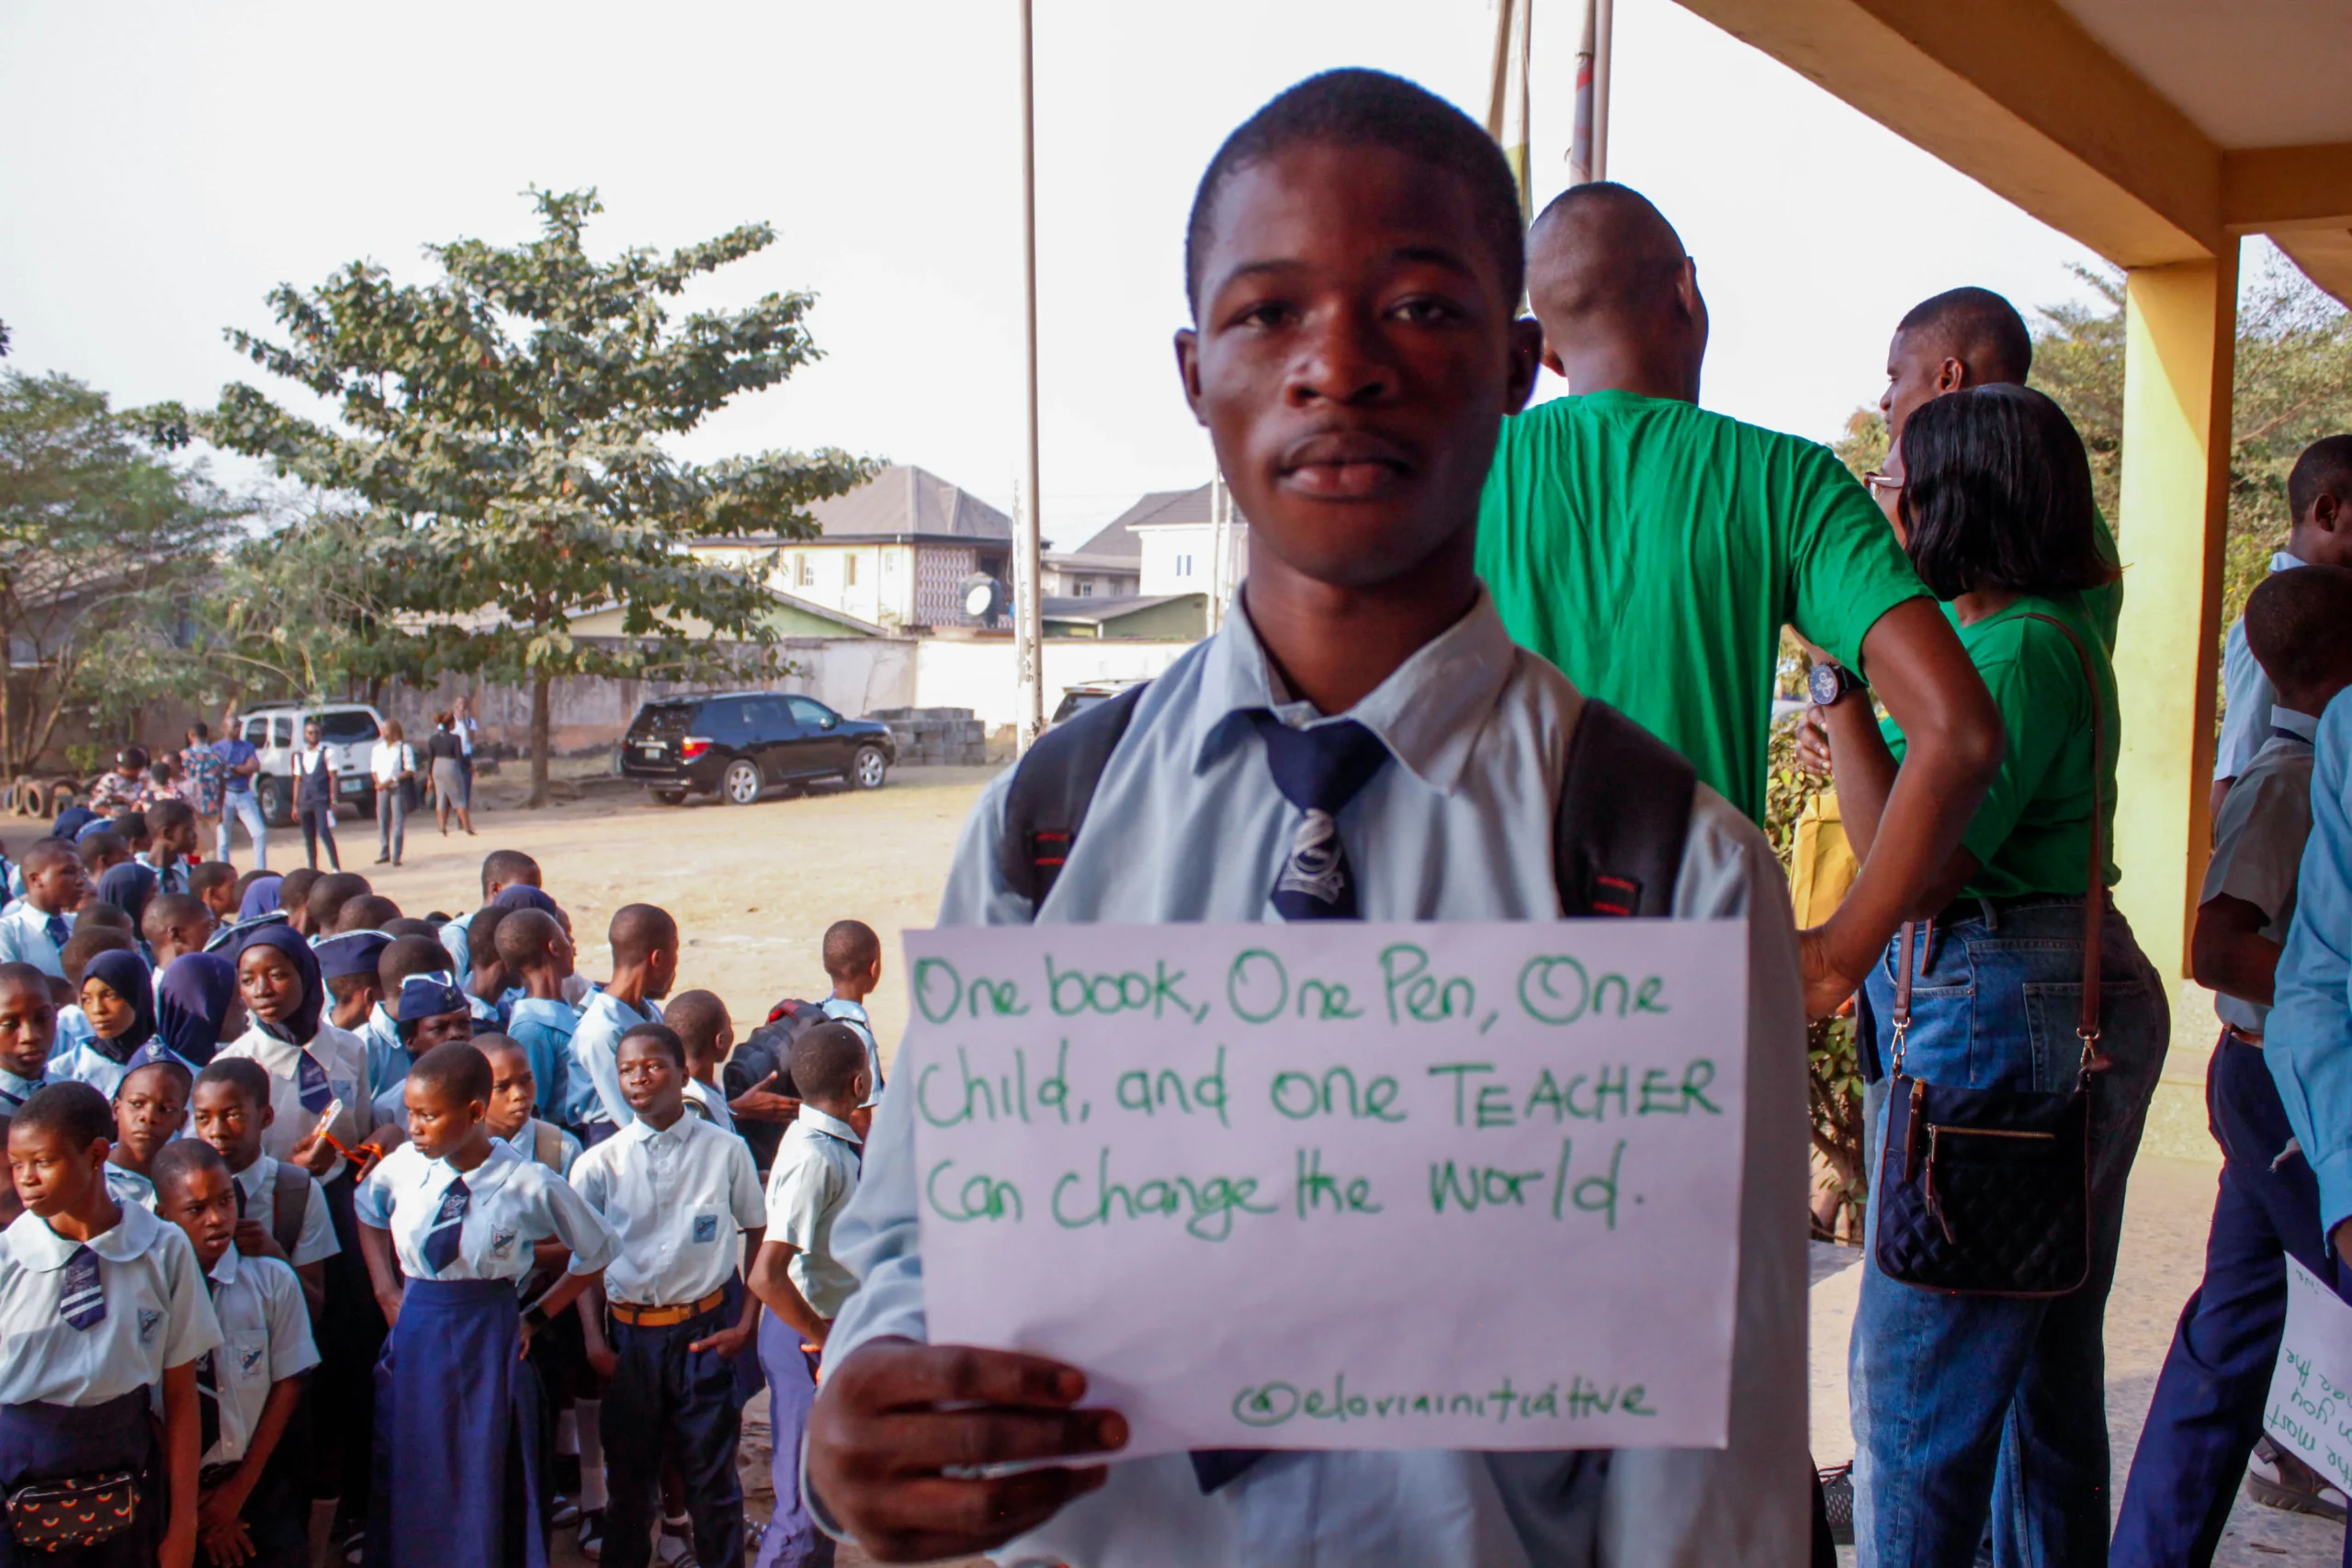 One book, One Pen, One
Child, and one TEACHER
Can change the world.
@eloriainitiative